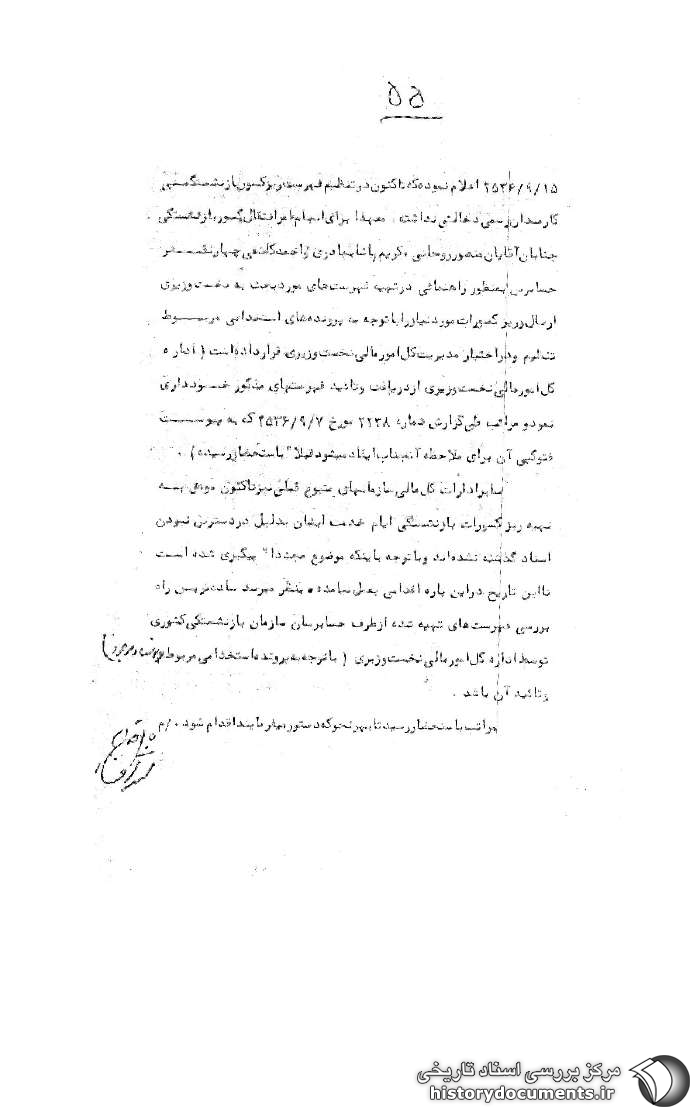 ۵۵
۲۵۳۶/۹/۱۵ اعلام نموده که تاکنون در تنظیم فهرست ریز کسور بازنشستگی هیچ
کارمندان رسمی دخالتی نداشته . معهذا برای انجام امر انتقال کسور بازنشستگی
جنابان آقایان منصور روحانی ، کریم پاشا بهادری چهار نفر
حسابرس بمنظور راهنمائی در تهیه فهرست‌های مورد بحث به نخست وزیری
ارسال و ریز کسورات مورد نیاز را با توجه به پرونده‌های استخدامی مربوط
تنظیم و در اختیار مدیریت کل امور مالی نخست وزیری قرار داده است ( اداره
کل امور مالی نخست وزیری از دریافت و تائید فهرستهای مذکور خودداری
نمود و مراتب طی گزارش شماره ۲۲۳۸ مورخ ۲۵۳۶/۹/۷ که به پیوست
فتوکپی آن برای ملاحظه آنجناب ایفاد میشود قبلا" باستحضار رسیده ) .
سایر ادارات کل مالی سازمانهای متبوع قبلی نیز تاکنون موفق به
تهیه ریز کسورات بازنشستگی ایام خدمت ایشان بدلیل در دسترس نبودن
اسناد گذشته نشده‌اند و با توجه باینکه موضوع مجددا" پیگیری شده است
تا این تاریخ در این باره اقدامی بعمل نیامده ، بنظر میرسد ساده‌ترین راه
بررسی فهرست‌های تهیه شده از طرف حسابرسان سازمان بازنشستگی کشوری
توسط اداره کل امور مالی نخست وزیری ( با توجه به پرونده استخدامی مربوط
و تائید آن باشد .
مراتب باستحضار رسید تا بهر نحو که دستور میفرمایند اقدام شود . /م
مرکز بررسی اسناد تاریخی
historydocuments.ir